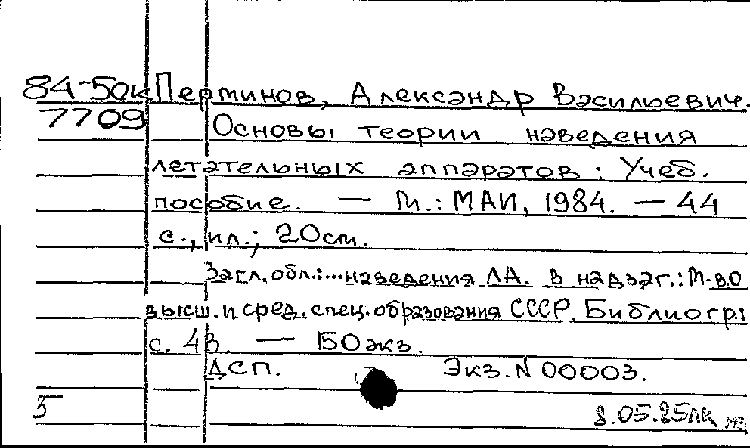 84-50к Пертинов, Александр Васильевич.
7709 Основы теории наведения
летательных аппаратов : Учеб.
пособие. — М.: МАИ, 1984. — 44
с., ил.; 20см.
Загл. обл.: ...наведения ЛА. В надзаг.: М-во
высш. и сред. спец. образования СССР. Библиогр:
с. 43 — 150 экз.
ДСП. Экз. N 00003.
5 05.85